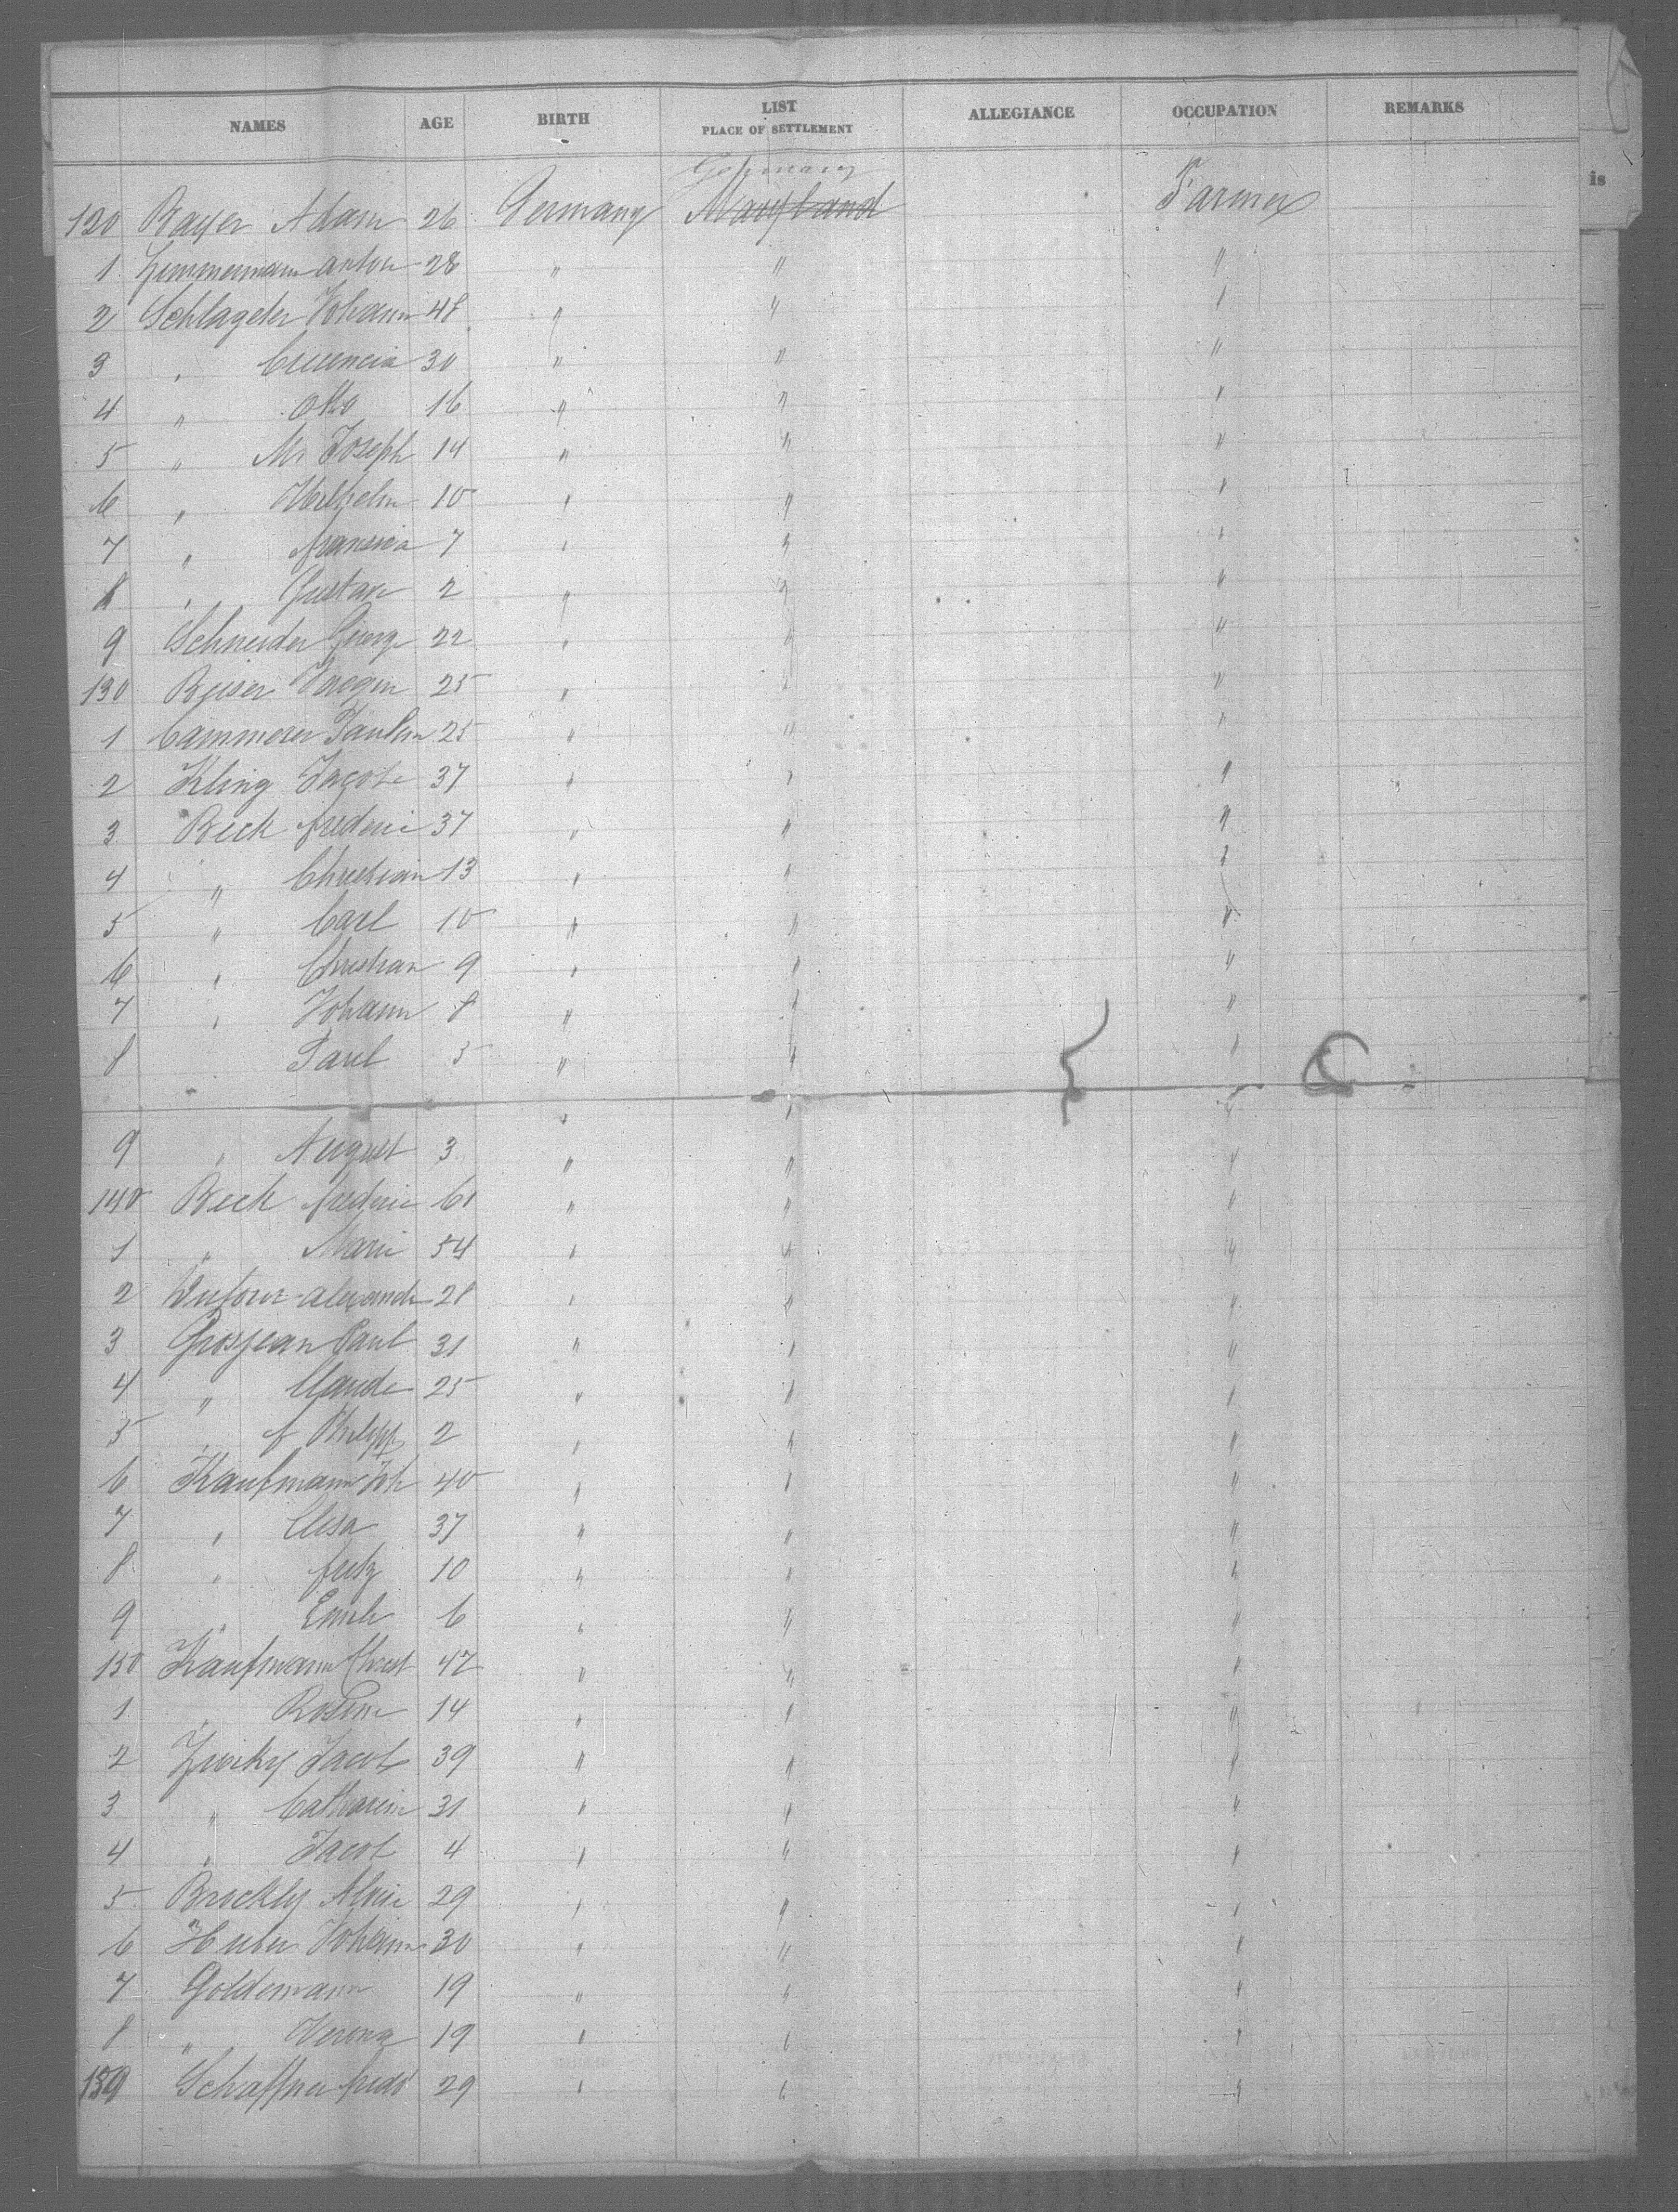 NAMES AGE BIRTH LIST PLACE OF SETTLEMENT ALLEGIANCE OCCUPATION REMARKS
is
Germany
120 Bayer Adam 26 Germany Maryland Farmer
1 Zimmermann anton 28 " " "
2 Schlageter Johann 48 " " "
3 " Crecencia 30 " " "
4 " Otto 16 " " "
5 " M. Joseph 14 " " "
6 " Wilhelm 10 " " "
7 " 7 " " "
8 " Gustav 2 " " "
9 Schneider George 22 " " "
130 Beiser 25 " " "
1 Cammerer 25 " " "
2 Kling Jacob 37 " " "
3 Beck frederic 37 " " "
4 " Christian 13 " " "
5 " Carl 10 " " "
6 " Christian 9 " " "
7 " Johann 8 " " "
8 Paul 5 " " "
" " "
9 " August 3 " " "
140 Beck frederic 61 " " "
1 " Marie 54 " " "
2 Dufour alexandre 28 " " "
3 Grosjean Paul 31 " " "
4 " Claude 25 " " "
5 " f Philipp 2 " " "
6 Kaufmann Joh 40 " " "
7 " Elisa 37 " " "
8 " fritz 10 " " "
9 " Emile 6 " " "
150 Kaufmann Christ 47 " " "
1 " Rosine 14 " " "
2 Zwicky Jacob 39 " " "
3 " Catharina 31 " " "
4 " Jacob 4 " " "
5 29 " " "
6 Huber Johann 30 " " "
7 Goldemann 19 " " "
8 " Verona 19 " " "
159 Schaffner fredr 29 " " "